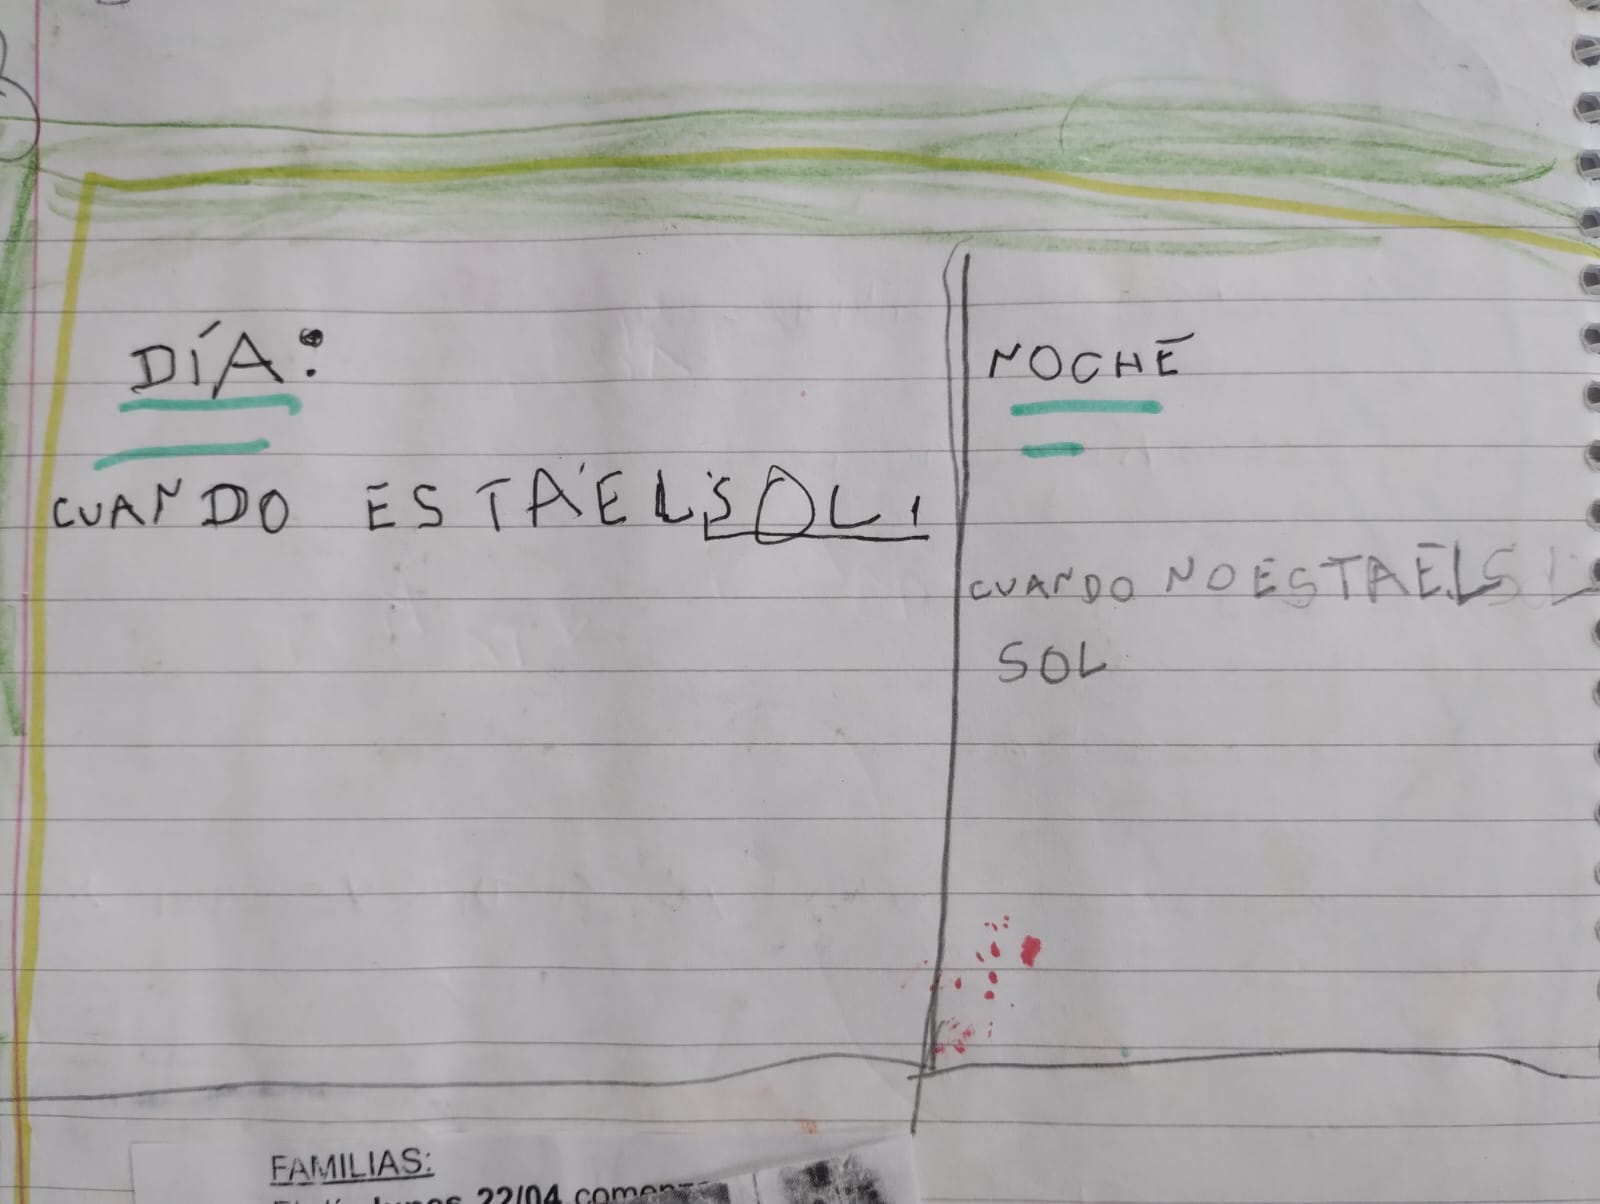 DÍA:
CUANDO ESTÁ EL SOL.
NOCHE
CUANDO NO ESTA EL S
SOL
FAMILIAS:
lunes 22/04